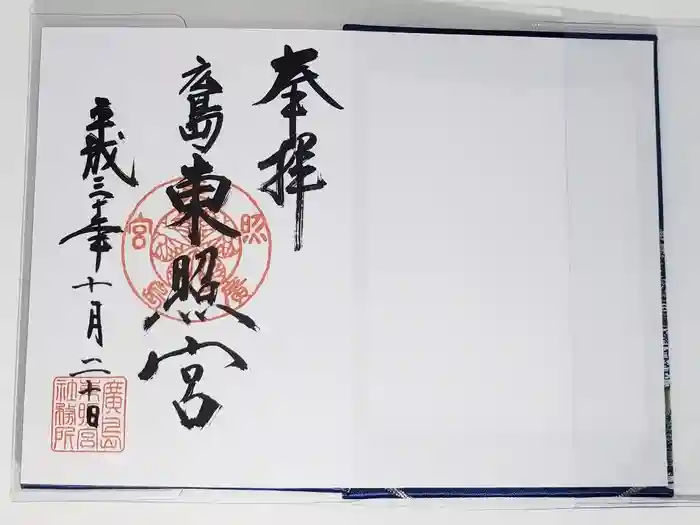 奉拝
広島東照宮
平成三十年十月二十日
廣島
東照宮
社務所